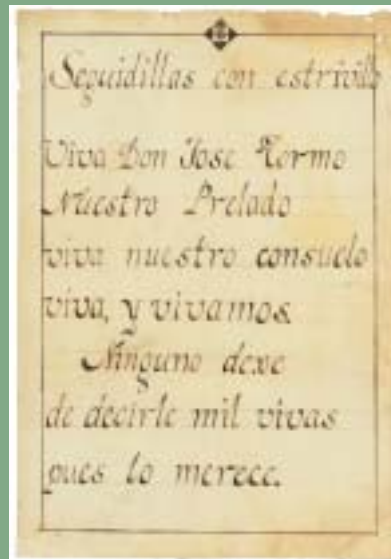 Seguidillas con estrivillo
Viva Don Jose Tormo
Nuestro Prelado
viva nuestro consuelo
viva, y vivamos.
Ninguno dexe
de decirle mil vivas
pues lo merece.